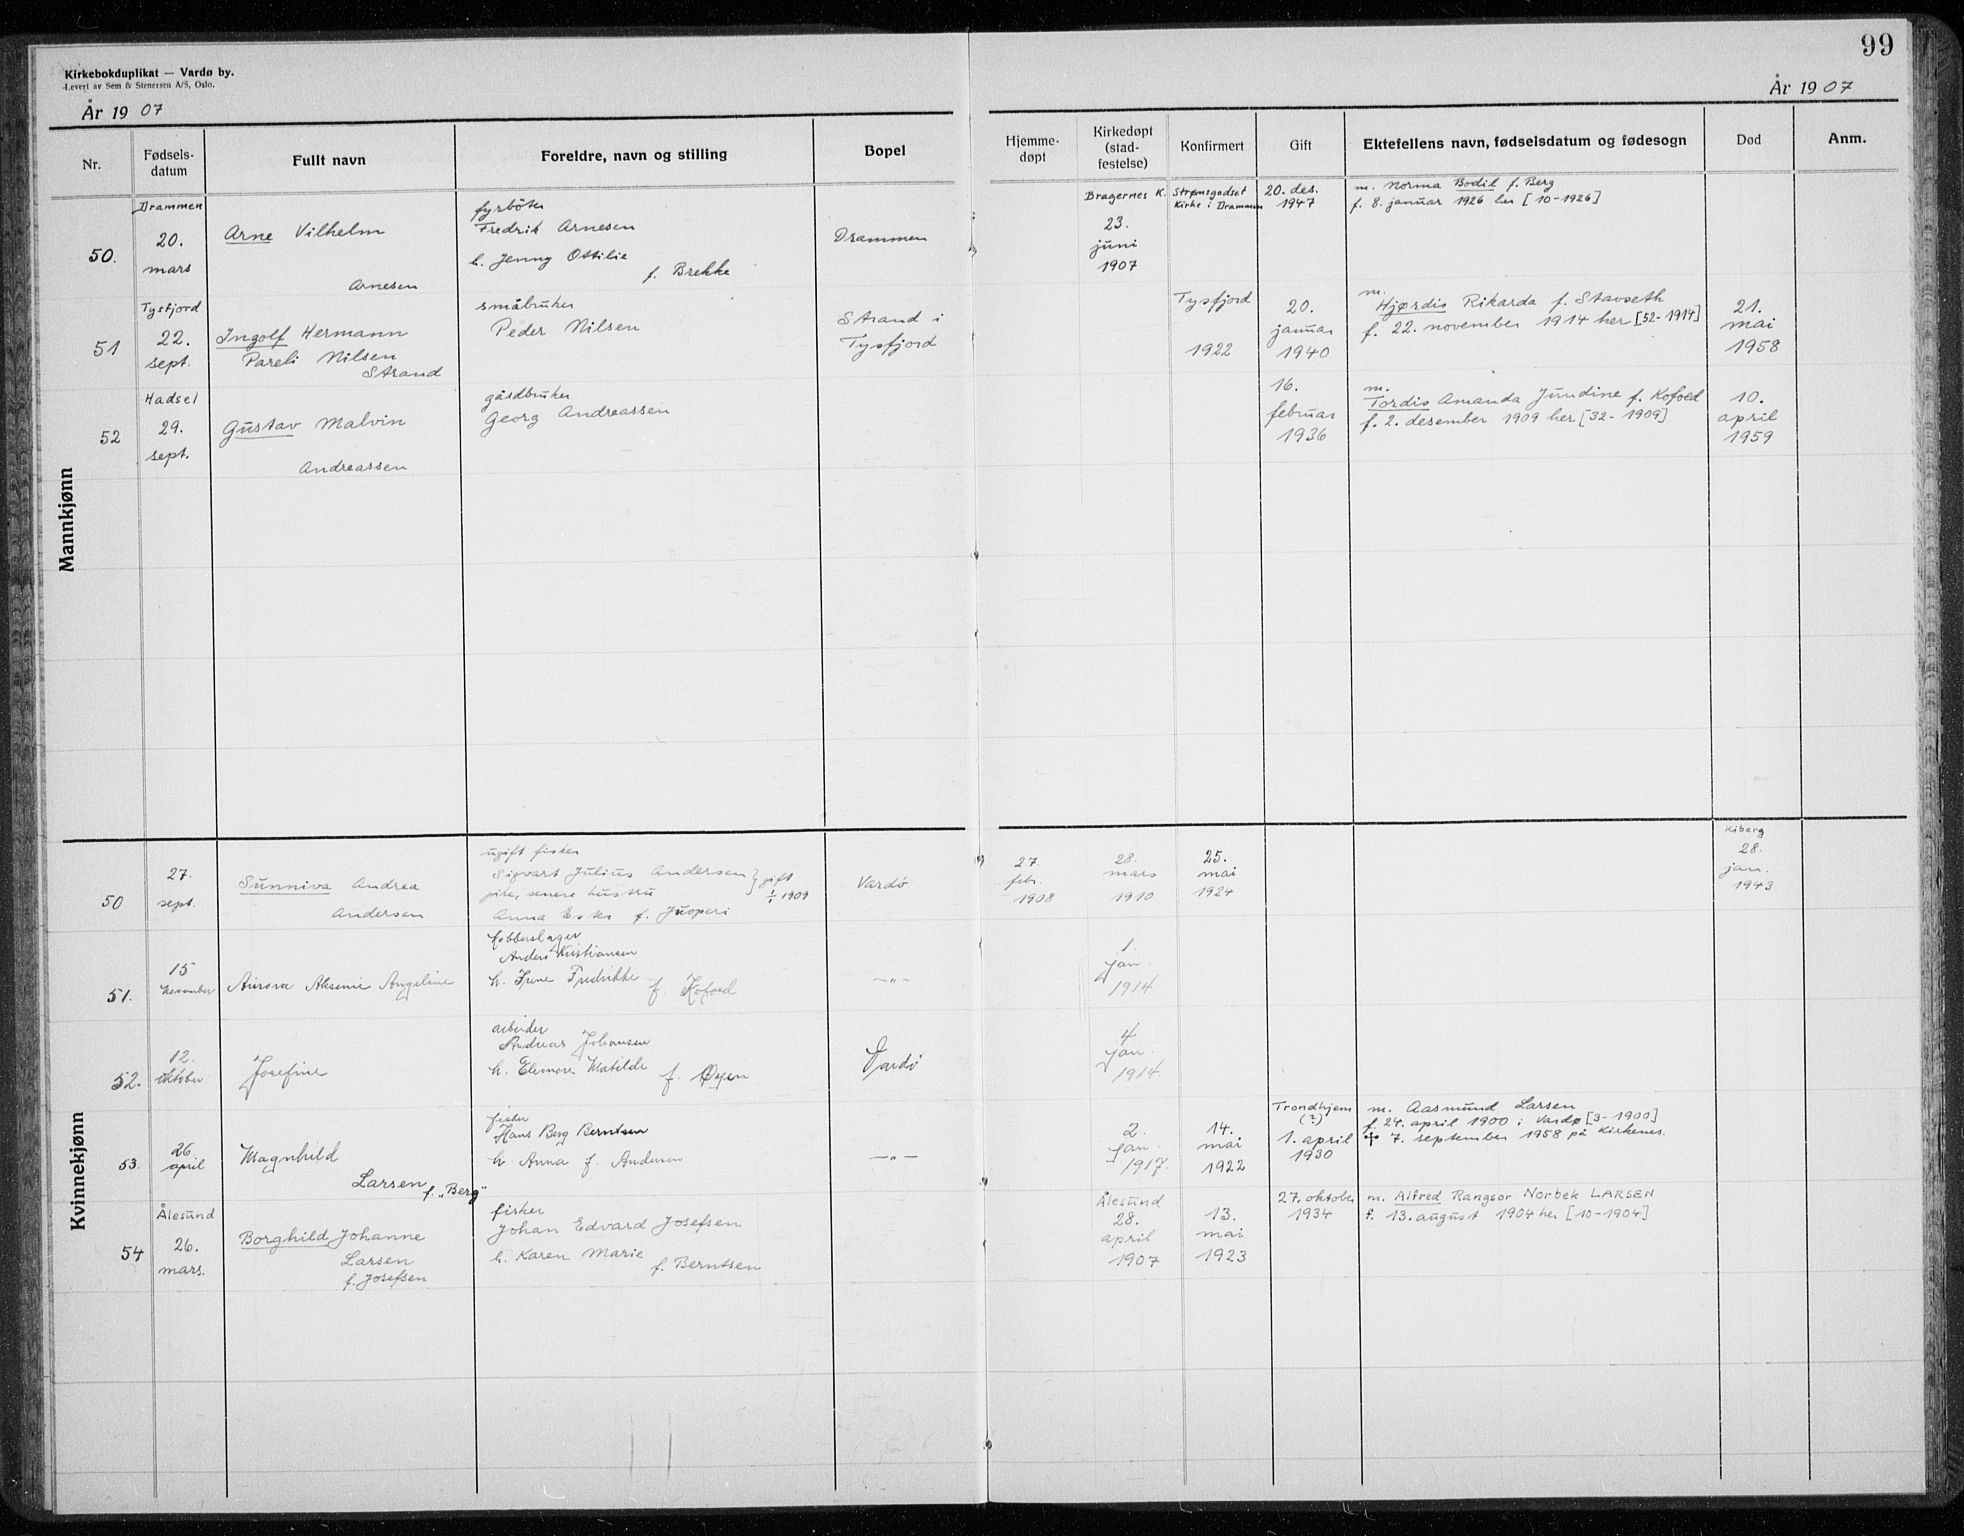 99
Kirkebokduplikat — Vardø by.
Levert av Sem & Stenersen A/S, Oslo.
År 1907
År 1907
Nr.
Fødsels-
datum
Fullt navn
Foreldre, navn og stilling
Bopel
Hjemme-
døpt
Kirkedøpt
(stad-
festelse)
Konfirmert
Gift
Ektefellens navn, fødselsdatum og fødesogn
Død
Anm.
Mannkjønn
50.
Drammen
20.
mars
Arne Vilhelm
Arnesen
fyrbøter
Fredrik Arnesen
h. Jenny Ottilie
f. Brekke
Drammen
Bragernes K.
23.
juni
1907
Strømsgodset
Kirke i Drammen
20. des.
1947
m. Norma Bodil f. Berg
f. 8. januar 1926 her [10-1926]
51
Tysfjord
22.
sept.
Ingolf Hermann
Pareli Nilsen
Strand
småbruker
Peder Nilsen
Strand i
Tysfjord
Tysfjord
1922
20.
januar
1940
m.
Hjørdis Rikarda f. Stavseth
f. 22. november 1914 her [52-1914]
21.
mai
1958
52
Hadsel
29.
sept.
Gustav Malvin
Andreassen
gårdbruker
Georg Andreassen
16.
februar
1936
m.
Tordis Amanda Jundine f. Kofoed
f. 2. desember 1909 her [32-1909]
10.
april
1959
Kvinnekjønn
50
27.
sept.
Sunniva Andrea
Andersen
ugift fisker
Sigvart Julius Andersen
pike, senere hustru
Anna f. Juoperi
} gift
1/1 1909
Vardø
27
febr.
1908
28.
mars
1910
25.
mai
1924
Kiberg
28.
jan.
1943
51.
15
November
Aurora Aksenie Angeline
kobberslager
Anders Kristiansen
h. Irene Fredrikke
f. Kofoed
—"—
1.
jan.
1914.
52.
12.
oktober
Josefine
arbeider
Andreas Johansen
h. Elenore Matilde
f. Øyen
Vardø
4
jan.
1914.
53.
26.
april
Magnhild
Larsen f. "Berg"
fisker
Hans Berg Berntsen
h. Anna f. Andersen
—"—
2.
jan.
1917.
14.
mai
1922
Trondhjem
(?)
1. april
1930
m. Aasmund Larsen
f. 24. april 1900 i Vardø [3-1900]
† 7. september 1958 på Kirkenes.
54
Ålesund
26.
mars.
Borghild Johanne
Larsen
f. Josefsen
fisker
Johan Edvard Josefsen
h. Karen Marie
f. Berntsen
Ålesund
28.
april
1907
13.
mai
1923
27. oktober
1934
m. Alfred Rangsor Norbek LARSEN
f. 13. august 1904 her [10-1904]